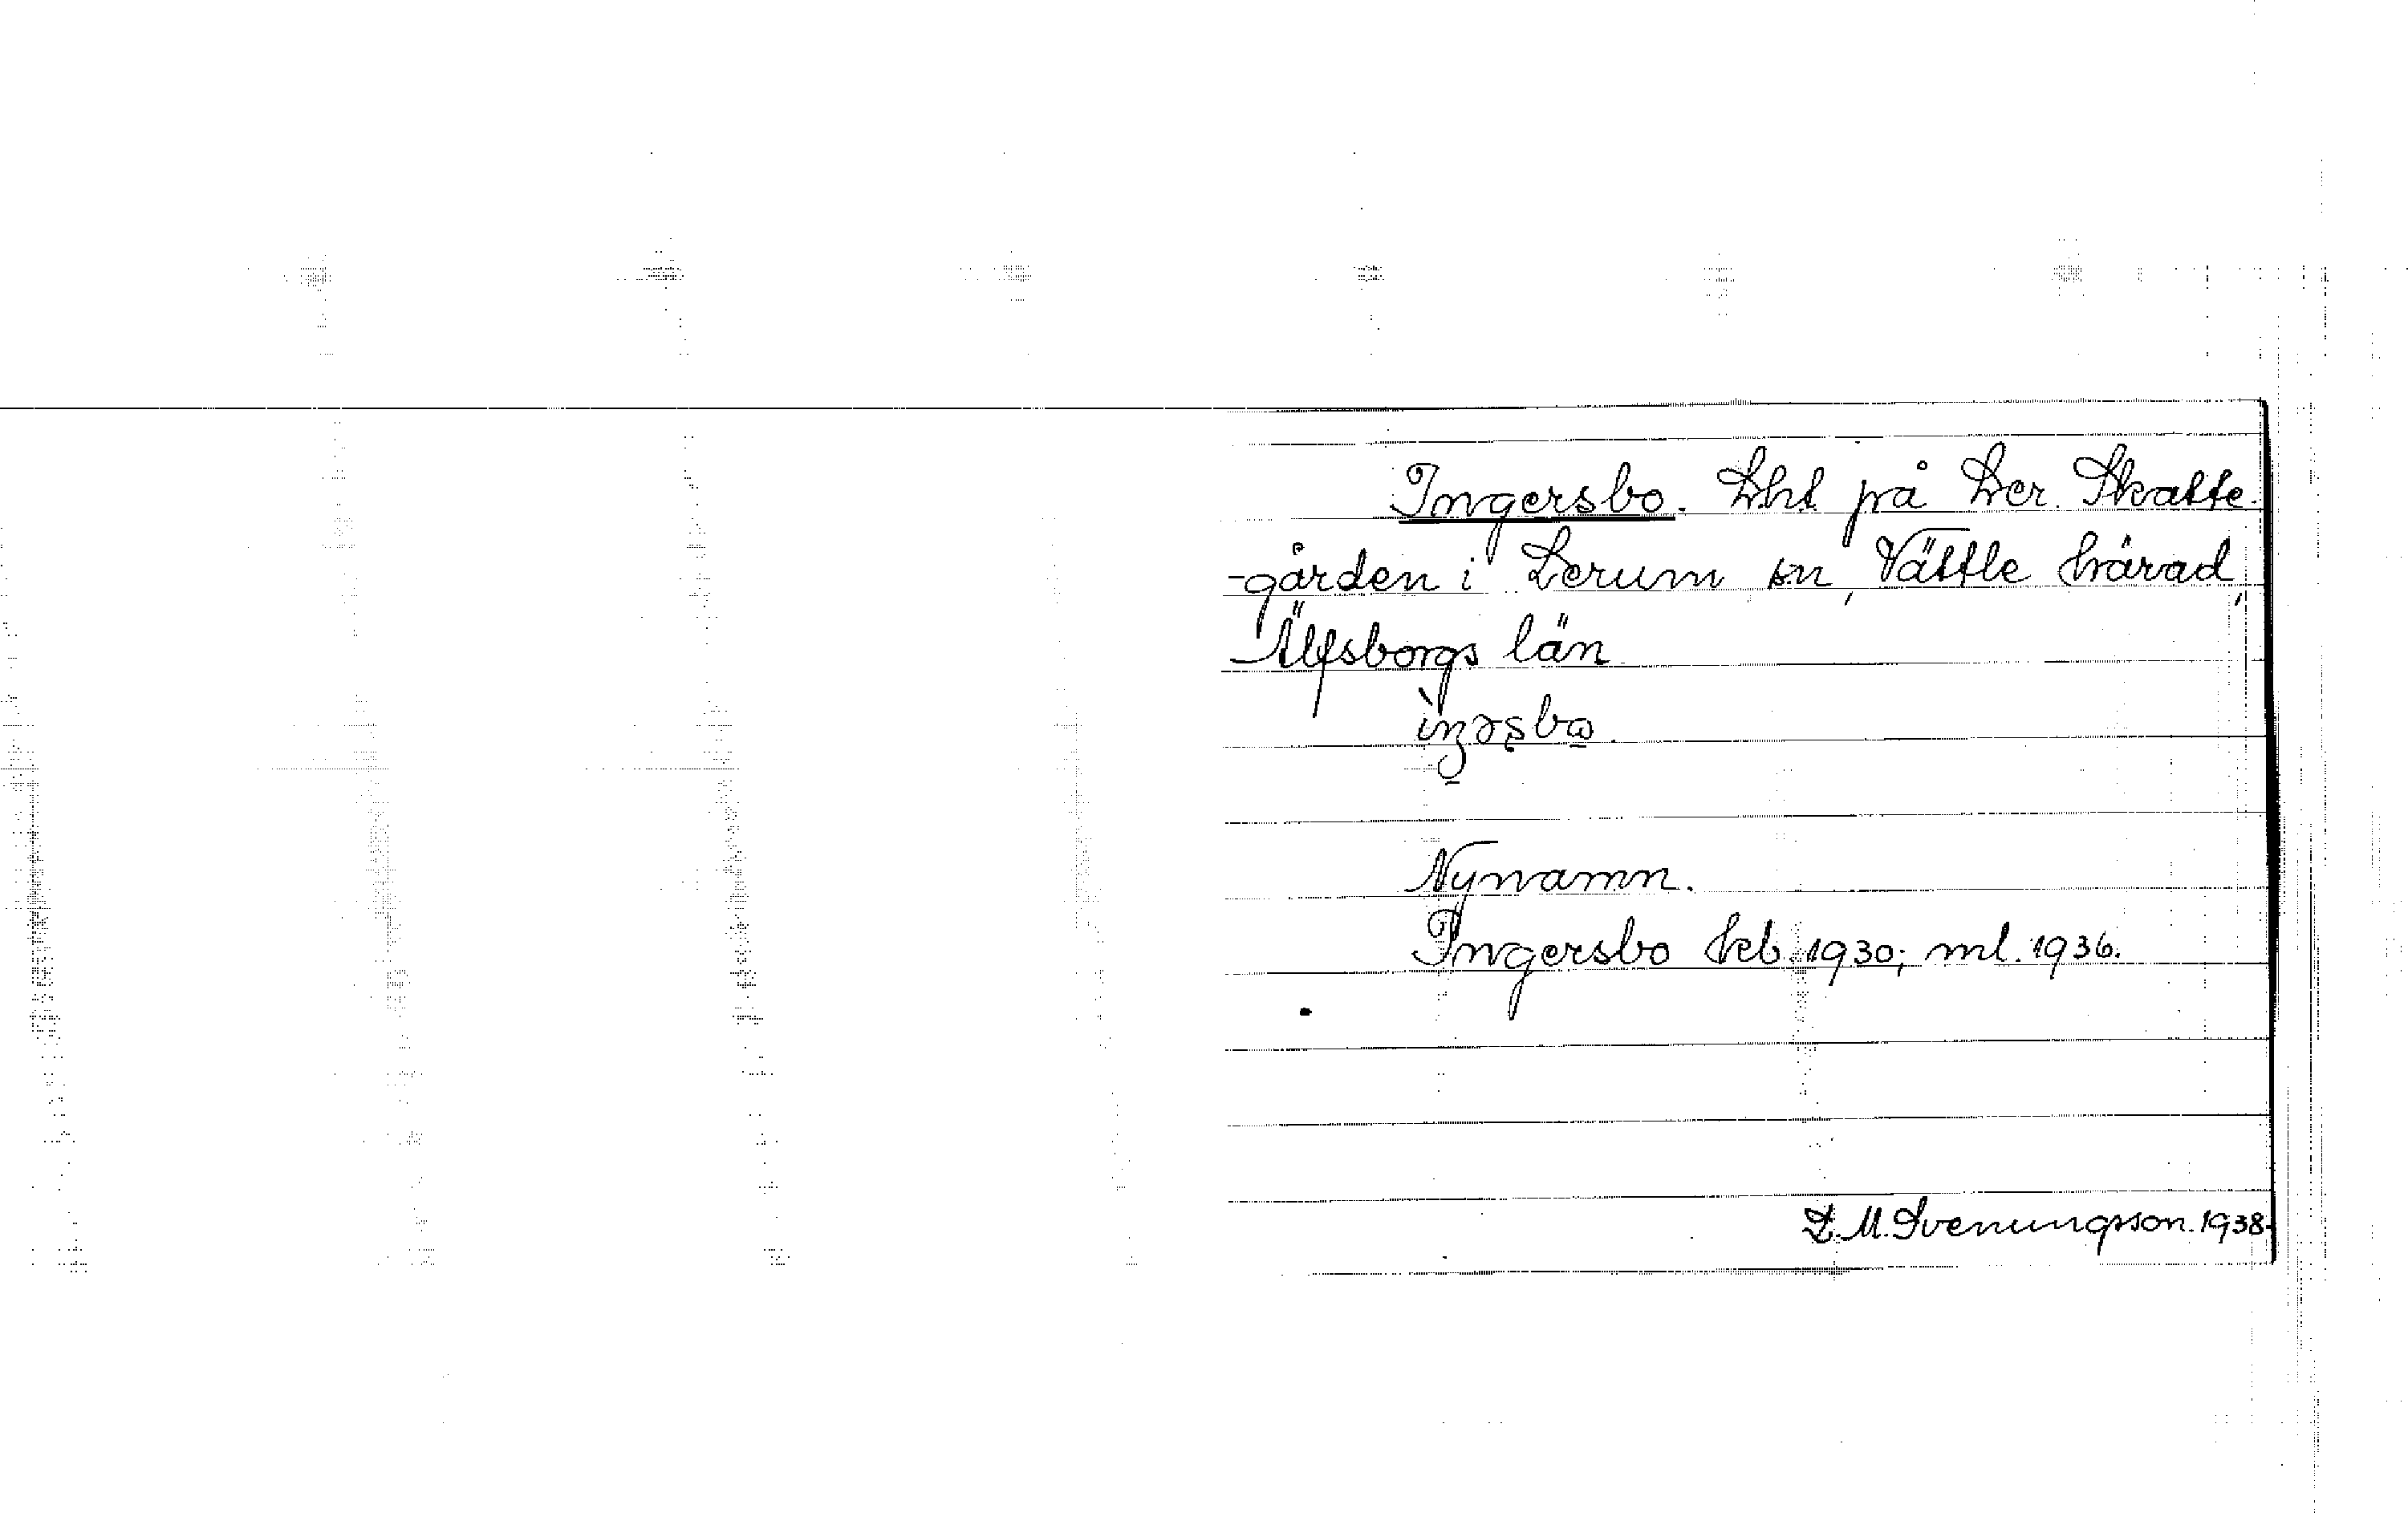 Ingersbo. Lht på Ler. Skatte-
-gården i Lerum sn, Vättle härad,
Älfsborgs län
Nynamn.
Ingersbo kb. 1930; ml. 1936.
L. M. Svenungsson. 1938.